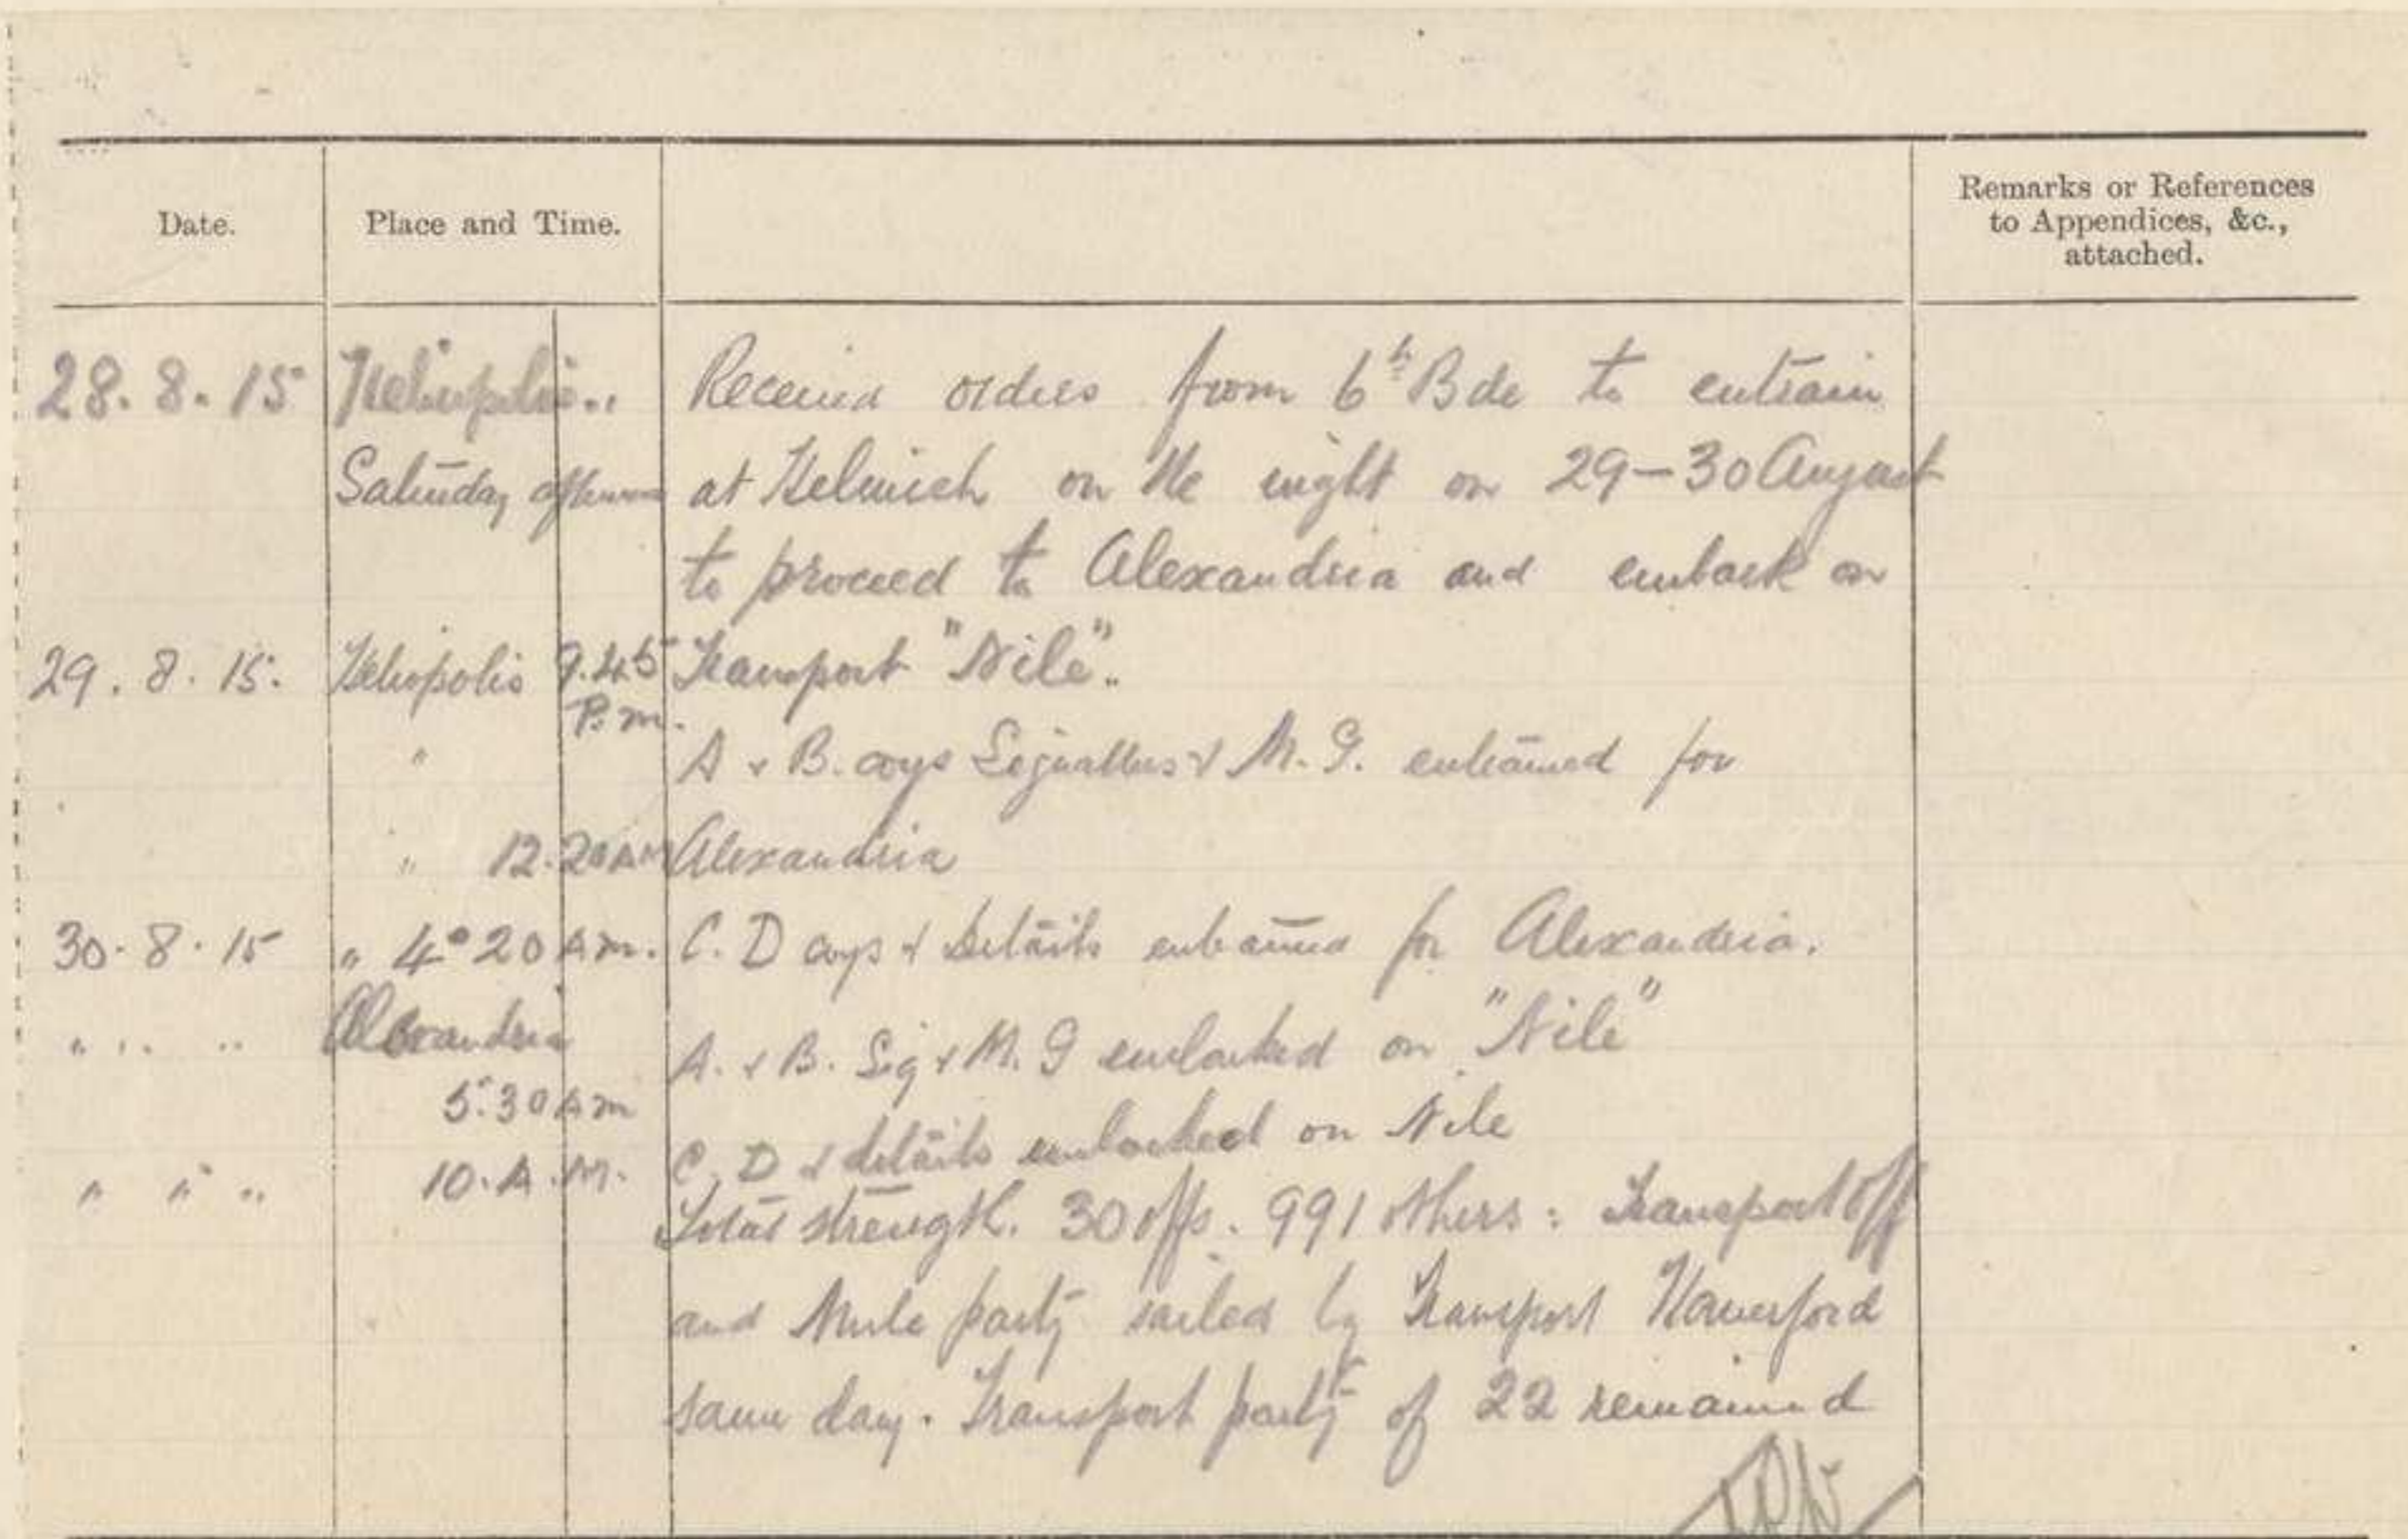 Date.
Place and Time.
Remarks or References
to Appendices, &c.,
attached.
28.8.15 Heliopolis.. Received orders from 6th Bde to entrain
Saturday afternoon at Helmieh on the night on 29-30 August
to proceed to Alexandria and embark on
29.8.15. Heliopolis 9.45 Transport "Nile".
P.m.
" A & B. coys Signallers & M.G. entrained for
" 12.20 AM Alexandria
30.8.15 " 4.20 Am. C. D coys & details entrained for Alexandria.
" " " Alexandria A. & B. Sig & M.G embarked on "Nile"
5.30 Am C. D & details embarked on Nile
" " " 10.A.M. Total strength. 30 offs. 991 others: Transport off
and Mule party sailed by Transport Haverford
same day. Transport party of 22 remained